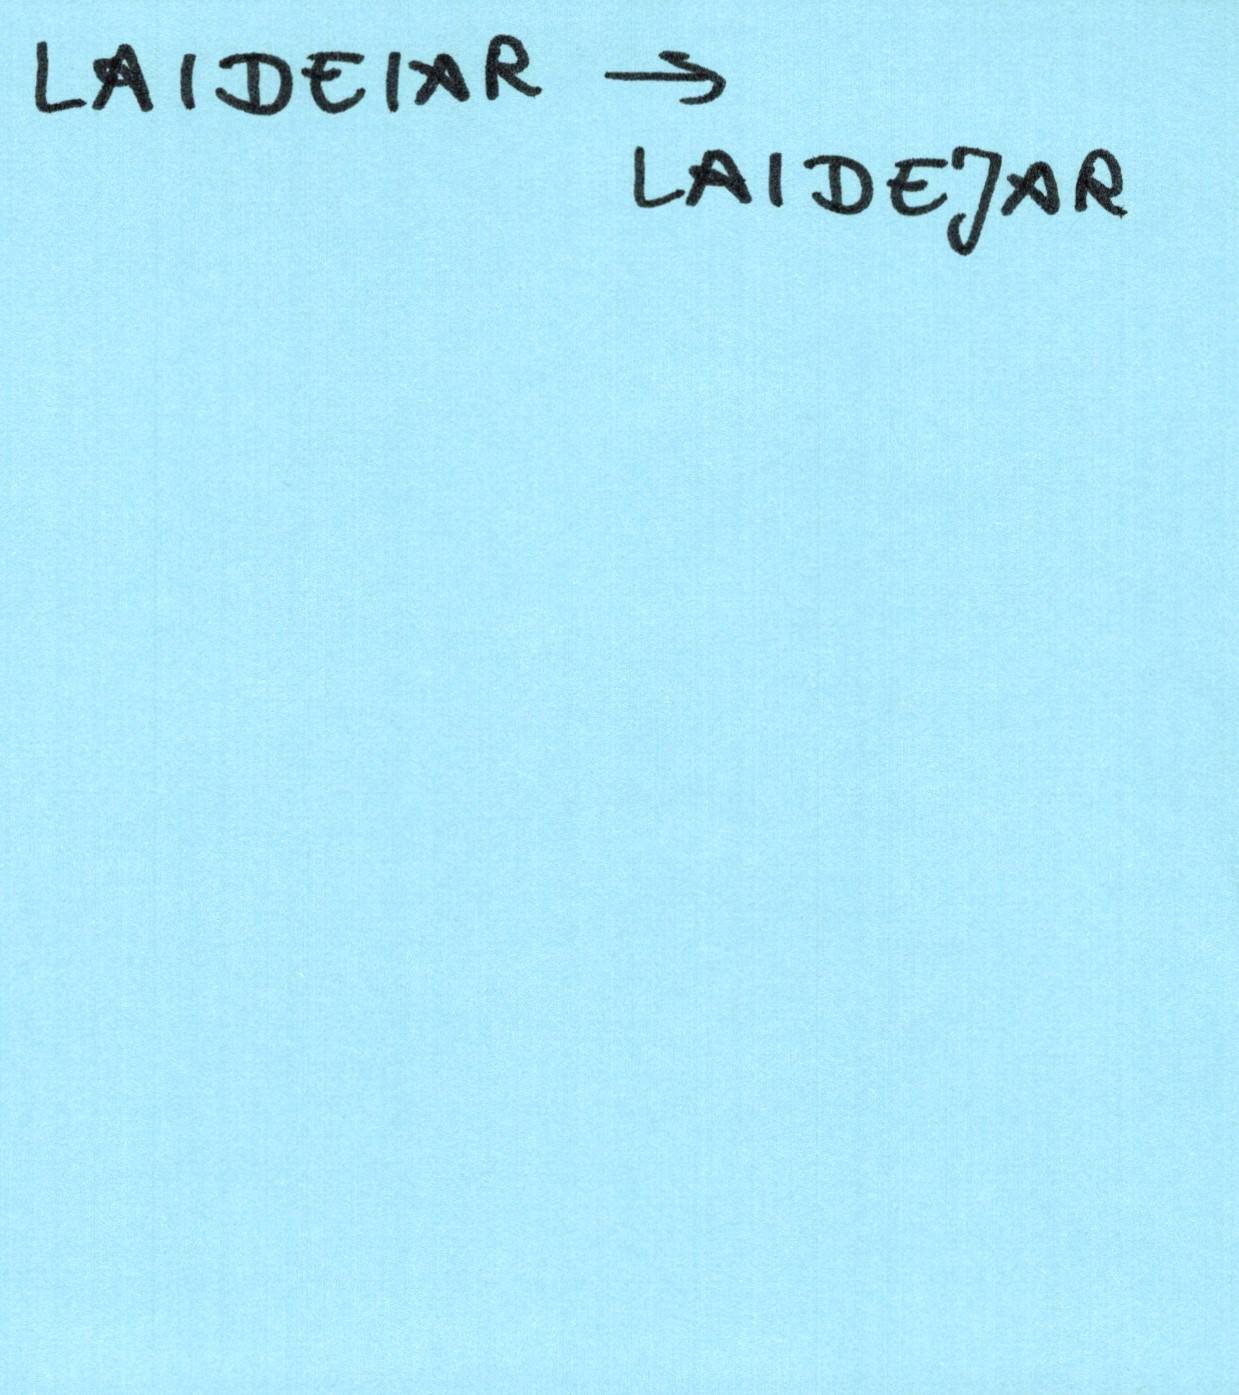 LAIDEIAR →
LAIDEJAR